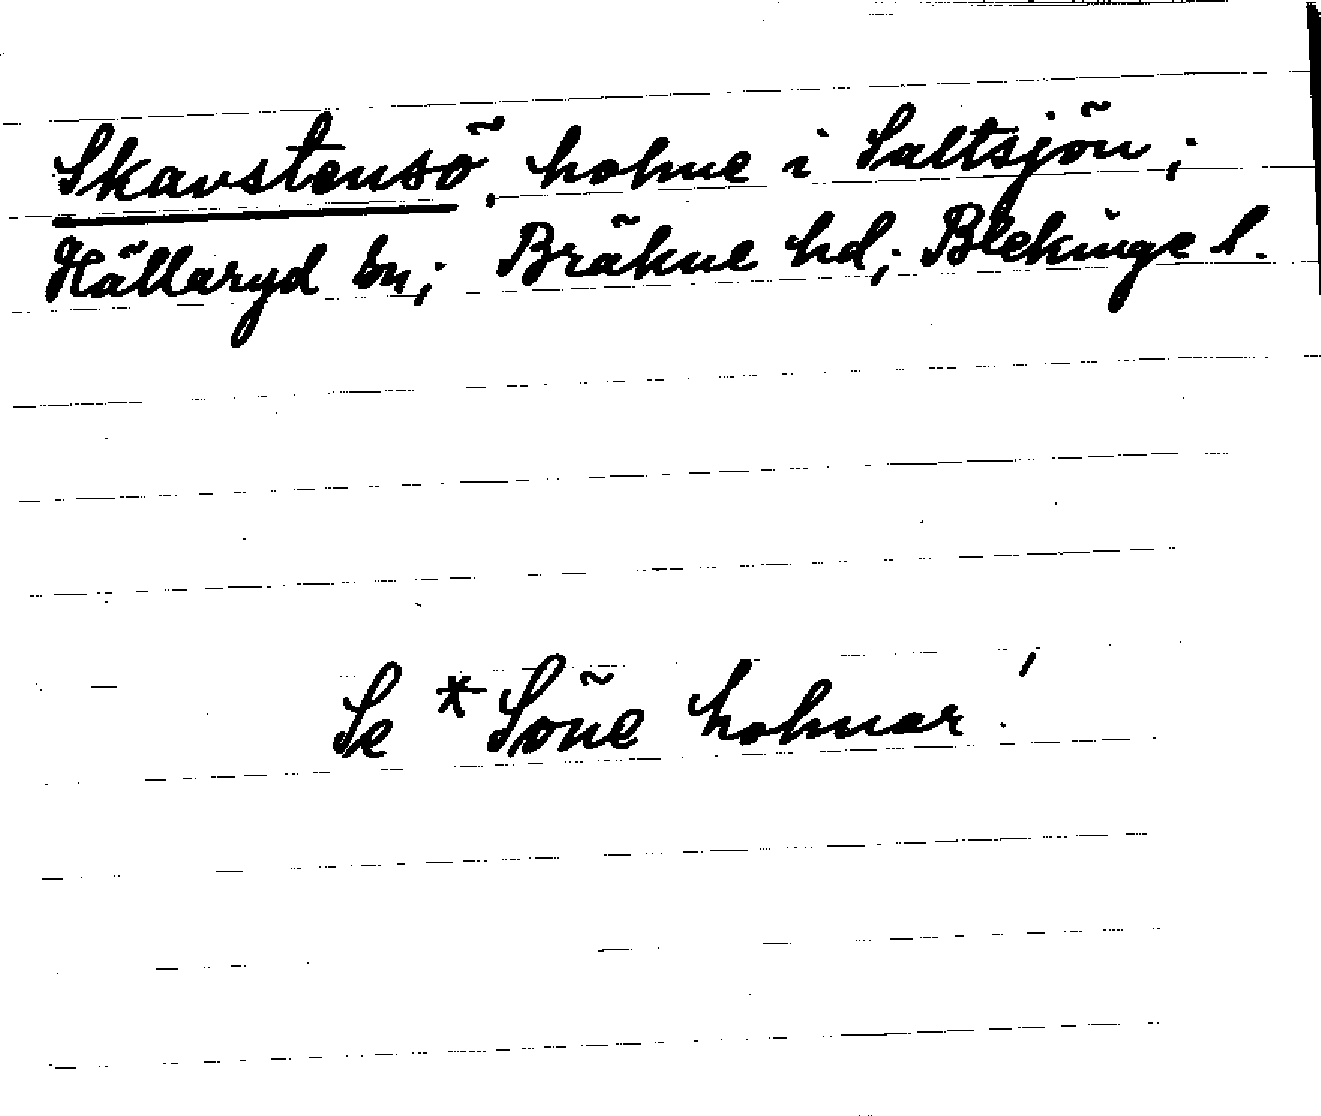 Skavstensö, holme i Saltsjön;
Hällaryd sn; Bräkne hd; Blekinge l.
Se *Söne holmar!